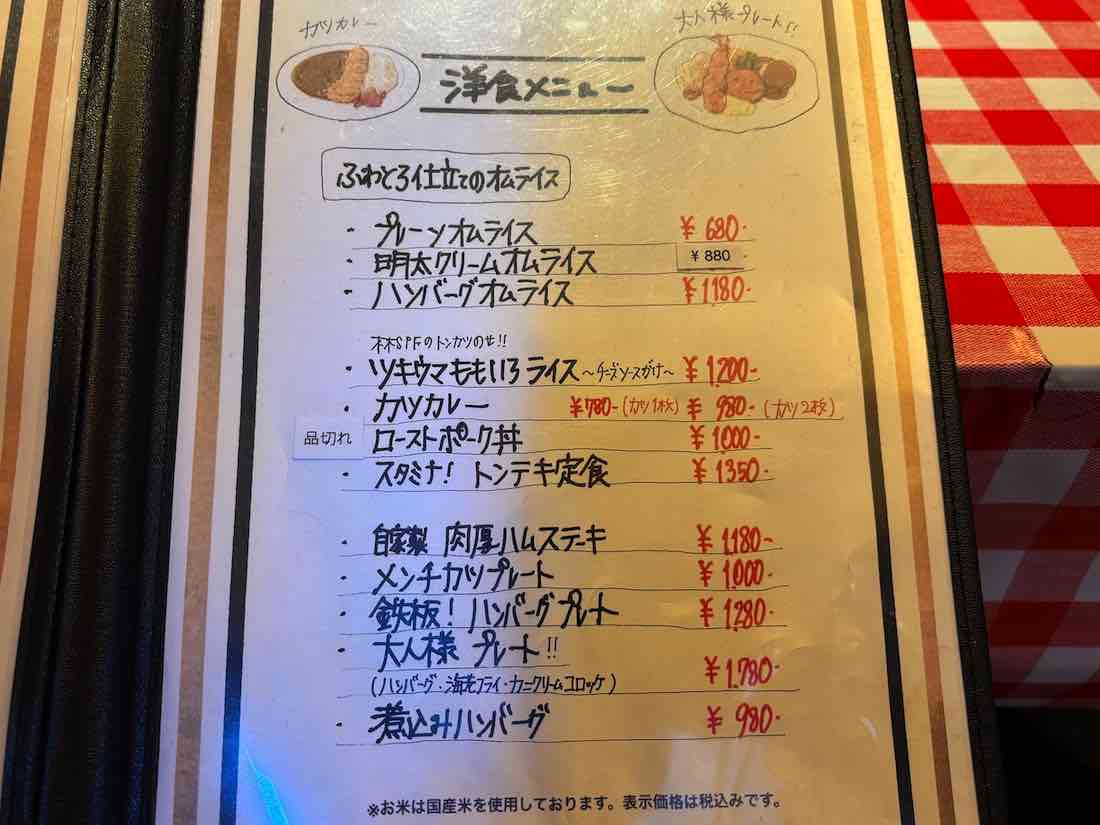 カツカレー
大人様プレート!!
洋食メニュー
ふわとろ仕立てのオムライス
・プレーンオムライス ¥680-
・明太クリームオムライス ¥880
・ハンバーグオムライス ¥1180-
林SPFのトンカツのせ!!
・ツキウマももいろライス～チーズソースがけ～ ¥1,200-
・カツカレー ¥780-(カツ1枚) ¥980-(カツ2枚)
品切れ ローストポーク丼 ¥1000-
・スタミナ! トンテキ定食 ¥1350-
・自家製 肉厚ハムステーキ ¥1,180-
・メンチカツプレート ¥1,000-
・鉄板! ハンバーグプレート ¥1,280-
・大人様 プレート!!
(ハンバーグ・海老フライ・カニクリームコロッケ) ¥1,780-
・煮込みハンバーグ ¥980-
※お米は国産米を使用しております。表示価格は税込みです。